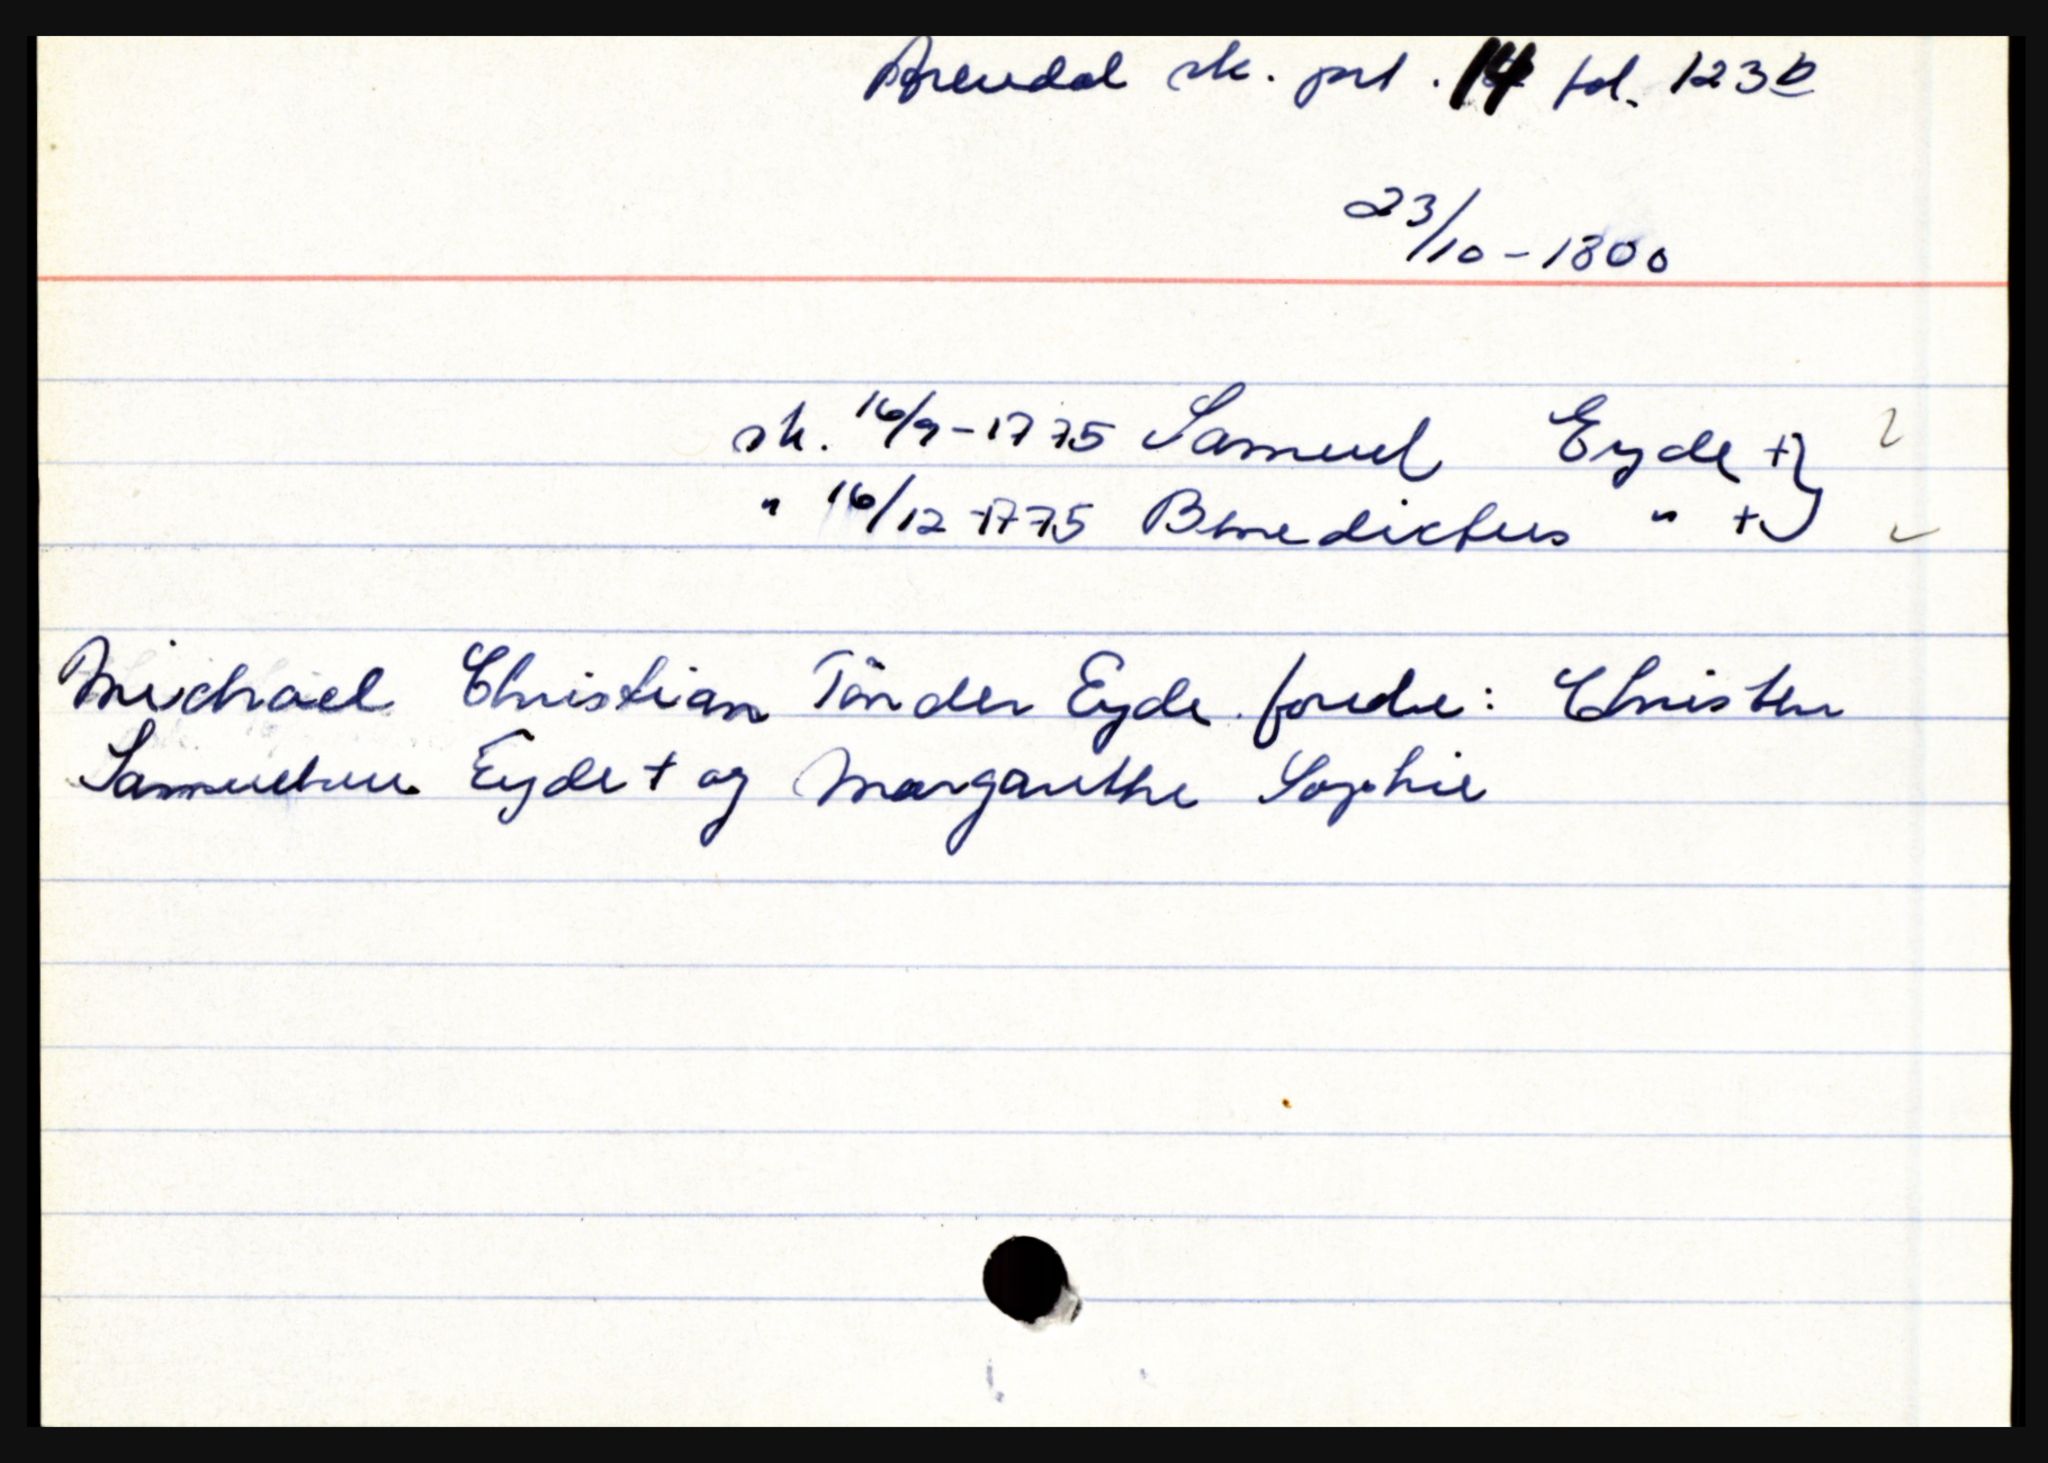 Arendal sk. prt. 14 fol. 123b
23/10-1800
sk. 16/9-1775 Samuel Eyde +}
" 16/12-1775 Benedictus " +}
Michael Christian Tönder Eyde. foreldre: Christen
Samuelsen Eyde + og Margarethe Sophie